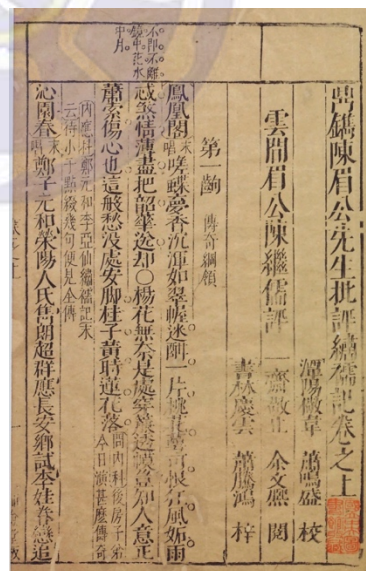 鼎鐫陳眉公先生批評繡襦記卷之上
潭陽儆韋 蕭鳴盛 校
雲間眉公陳繼儒評 一齋敬止 余文熙 閱
書林慶雲 蕭騰鴻 梓
第一齣 傳奇綱領
鳳凰閣 末唱 嗟蝶夢香沉渾如翠幄迷酣一片桃花
忒煞情薄盡把韶華送却〇楊花無奈是處穿簾透幕豈知人意正
蕭索傷心也這般愁沒處安脚桂子黃時蓮花落 問內科後房子弟今日演甚麼傳奇
內應科鄭元和李亞仙繡襦記末
云待小子㸃綴幾句便見全傳
沁園春 末唱 鄭子元和滎陽人氏雋朗超群應長安鄉試李娃眷戀追
不即不離
鏡中花水
中月